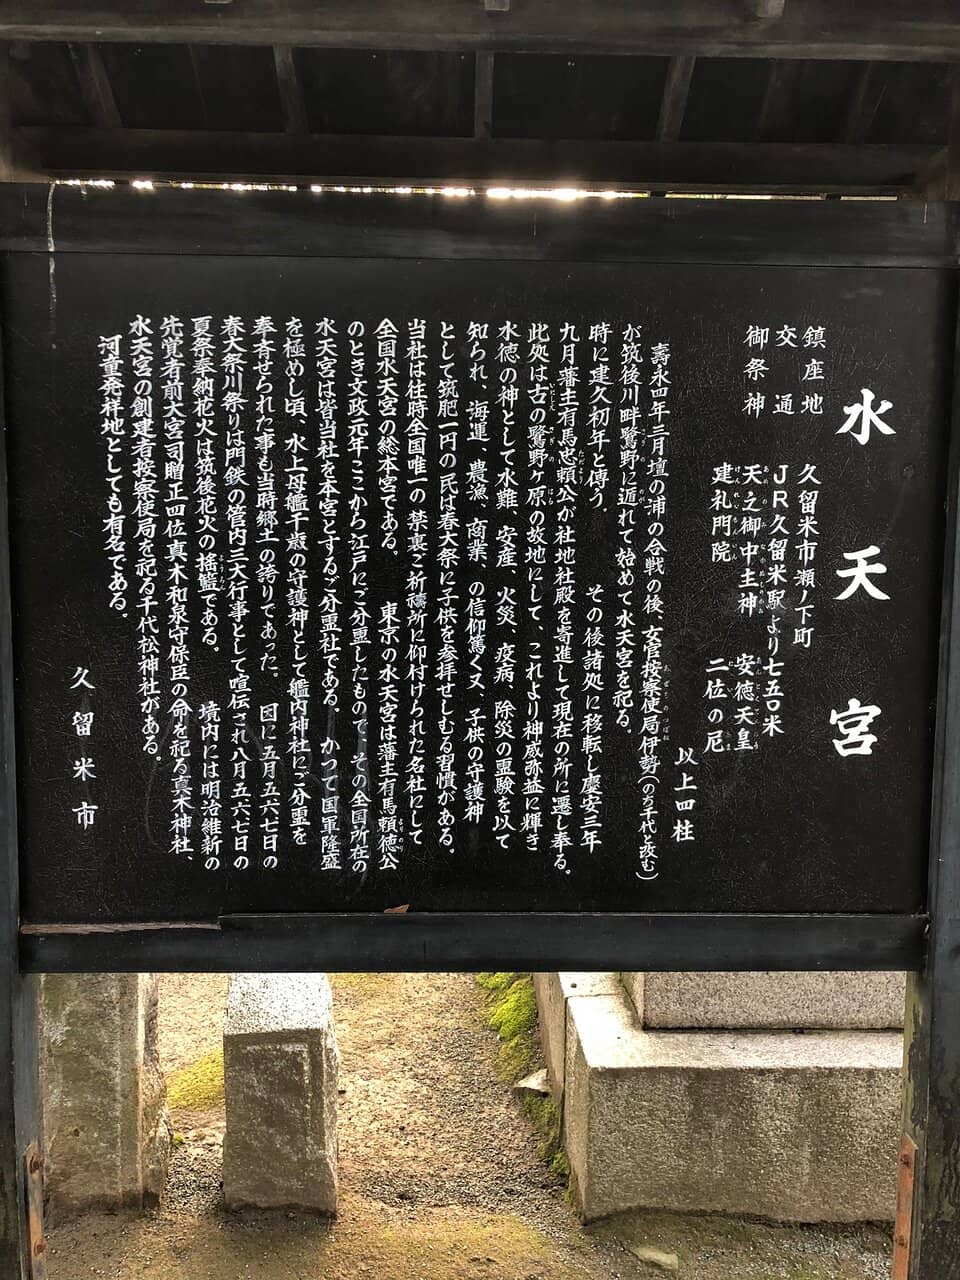 水天宮
鎮座地 久留米市瀬ノ下町
交通 JR久留米駅より七五〇米
御祭神 天之御中主神 安徳天皇
建礼門院 二位の尼
以上四柱
壽永四年三月壇の浦の合戦の後、女官按察使局伊勢(のち千代と改む)
が筑後川畔鷺野に遁れて始めて水天宮を祀る。
時に建久初年と傳う。 その後諸処に移転し慶安三年
九月藩主有馬忠頼公が社地社殿を寄進して現在の所に遷し奉る。
此処は古の鷺野ヶ原の故地にして、これより神威弥益に輝き
水徳の神として水難、安産、火災、疫病、除災の霊験を以て
知られ、海運、農漁、商業、の信仰篤く又、子供の守護神
として筑肥一円の民は春大祭に子供を参拝せしむる習慣がある。
当社は往時全国唯一の禁裏ご祈禱所に仰付けられた名社にして
全国水天宮の総本宮である。 東京の水天宮は藩主有馬頼徳公
のとき文政元年ここから江戸にご分霊したもので、その全国所在の
水天宮は皆当社を本宮とするご分霊社である。 かつて国軍隆盛
を極めし頃、水上母艦千歳の守護神として艦内神社にご分霊を
奉斉せられた事も当時郷土の誇りであった。 因に五月五六七日の
春大祭川祭りは門鉄の管内三大行事として喧伝され八月五六七日の
夏祭奉納花火は筑後花火の揺籃である。 境内には明治維新の
先覚者前大宮司贈正四位真木和泉守保臣の命を祀る真木神社、
水天宮の創建者按察使局を祀る千代松神社がある。
河童発祥地としても有名である。
久留米市